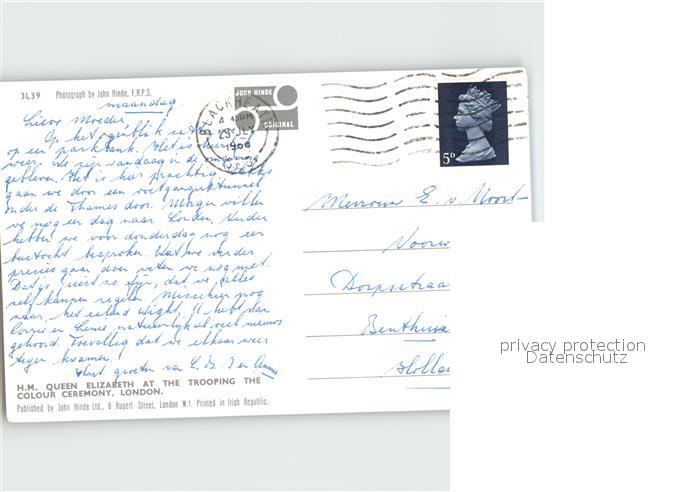 3L39 Photograph by John Hinde, F.R.P.S.
JOHN HINDE
ORIGINAL
BLACKHEATH
1968
5D
maandag.
Lieve Moeder,
Op het ogenblik zit
op een parkbank. Het is heerlijk
weer. We zijn vandaag in de omgeving
gebleven. Het is hier prachtig.
gaan we door een voetgangerstunnel
onder de Thames door. Morgen willen
we nog een dag naar Londen. Verder
hebben we voor donderdag nog een
bustocht besproken. Wat we verder
precies gaan doen weten we nog niet.
Dat is juist zo fijn, dat we alles
zelf kunnen regelen. Misschien nog
naar het eiland Wight. U hebt van
Corrie en natuurlijk al veel nieuws
gehoord. Toevallig dat we elkaar weer
tegen kwamen!
Hart. groeten van en Anny
Mevrouw E. v. Moort-
Voorw
Dorpsstraa
Benthuiz
Holla
H.M. QUEEN ELIZABETH AT THE TROOPING THE
COLOUR CEREMONY, LONDON.
Published by John Hinde Ltd., 6 Rupert Street, London W.1. Printed in Irish Republic.
privacy protection
Datenschutz